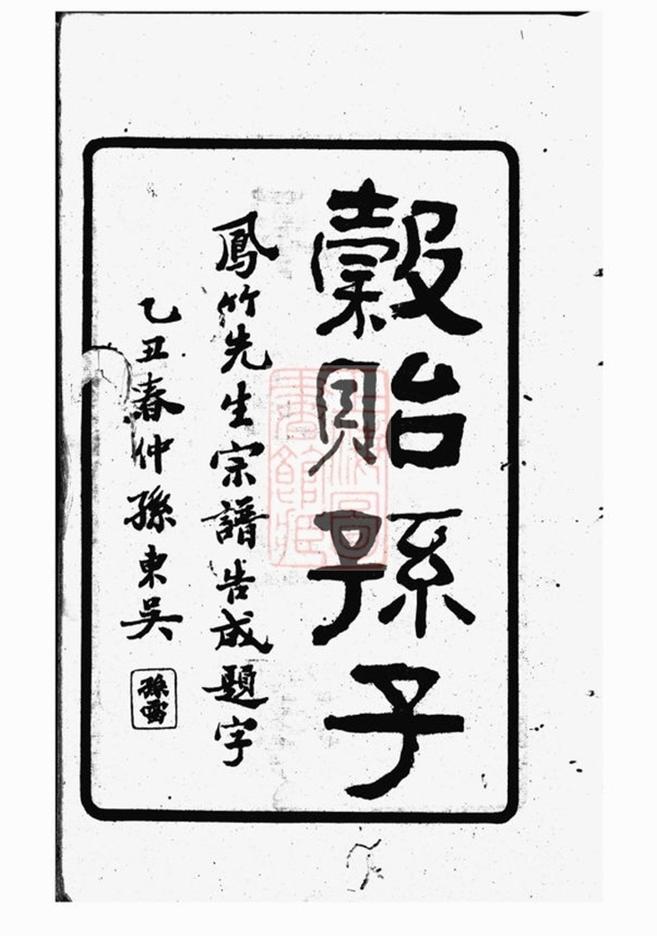 穀貽孫子
鳳竹先生宗譜告成題字
乙丑春仲孫東吳